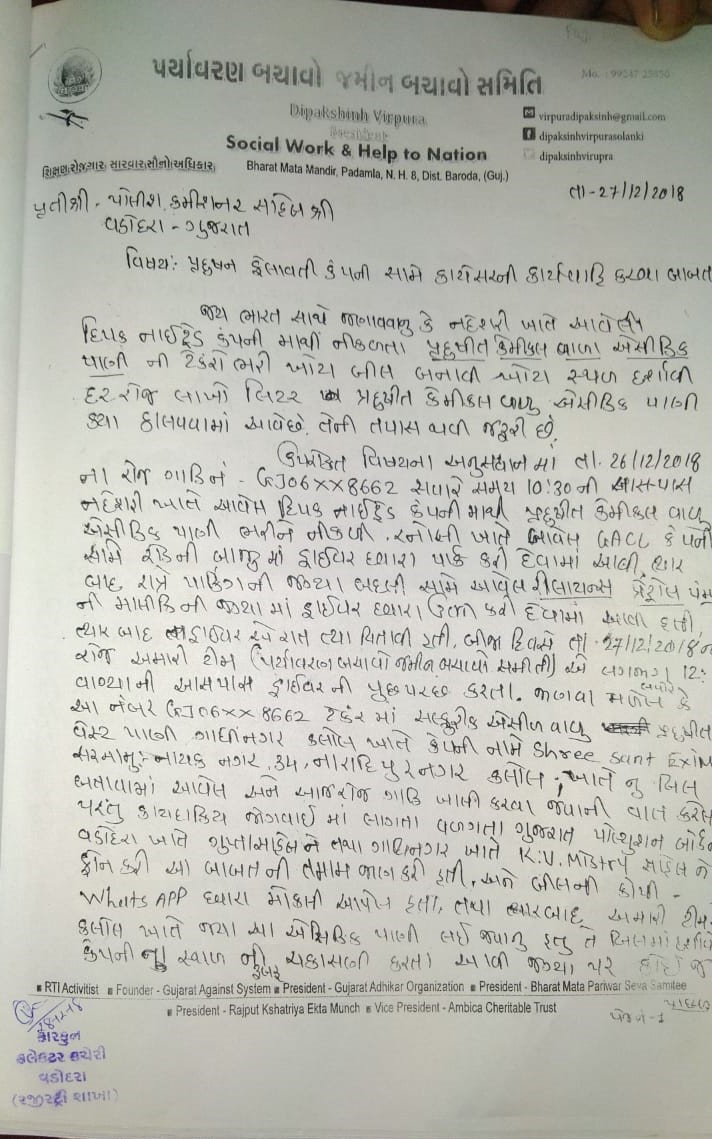 પર્યાવરણ બચાવો જમીન બચાવો સમિતિ
Dipakshinh Virpura
President
Social Work & Help to Nation
Bharat Mata Mandir, Padamla, N. H. 8, Dist. Baroda, (Guj.)
શિક્ષણ,રોજગાર,સારવાર,સૌનો અધિકાર
virpuradipaksinh@gmail.com
dipaksinhvirpurasolanki
dipaksinhvirupra
તા-27/12/2018
પ્રતીશ્રી - પોલીશ કમીશનર સાહેબ શ્રી
વડોદરા - ગુજરાત
વિષય: પ્રદુષન ફેલાવતી કંપની સામે કાયદેસરની કાર્યવાહિ કરવા બાબત
જય ભારત સાથે જણાવવાનુ કે નદેશરી ખાતે આવેલી
દિપક નાઈટ્રેડ કંપની માથી નીકળતા પ્રદુષીત કેમીકલ વાળા એસીડિક
પાણી ની ટેકરો ભરી ખોટા બીલ બનાવી ખોટા સ્થળ દર્શાવી
દરરોજ લાખો લિટર પ્રદુષીત કેમીકલ વાળુ એસીડિક પાણી
ક્યા ઠાલવવામાં આવેછે. તેની તપાસ થવી જરૂરી છે.
ઉપરોક્ત વિષયના અનુસંધાન માં તા. 26/12/2018
ના રોજ ગાડિ નં - GJ06XX8662 સવારે સમય 10:30 ની આસ-પાસ
નદેશરી ખાતે આવેલ દિપક નાઈટ્રેડ કંપની માથી પ્રદુષીત કેમીકલ વાળુ
એસીડિક પાણી ભરીને નીકળી. રનોલી ખાતે આવેલ GACL કંપની
સામે રોડની બાજુ માં ડ્રાઈવર દ્વારા પાર્ક કરી દેવામાં આવી, ત્યાર
બાદ રાત્રે પાર્કિંગની જગ્યા બદલી સામે આવેલ રીલાયન્સ પેટ્રોલ પંપ
ની માલીકિ ની જગ્યા માં ડ્રાઈવર દ્વારા ઉભી કરી દેવામાં આવી હતી
ત્યાર બાદ ડ્રાઈવર રાત ત્યા વિતાવી હતી, બીજા દિવસે તા. 27/12/2018 ના
રોજ અમારી ટીમ (પર્યાવરણ બચાવો જમીન બચાવો સમીતી) એ લગભગ 12:
બપોરે
વાગ્યાની આસપાસ ડ્રાઈવર ની પુછપરછ કરતા. જાણવા મળેલ કે
આ નંબર GJ06XX8662 ટેંકર માં સલ્ફ્યુરીક એસીડ વાળુ પ્રદુષીત
વેસ્ટ પાણી ગાંધીનગર કલોલ ખાતે કંપની નામે Shree Sant Exim
સરનામુ:- નાયક નગર, 34, નારાદિપુરનગર કલોલ, ખાતે નુ બિલ
બતાવામાં આવેલ અને આજરોજ ગાડિ ખાલી કરવા જવાની વાત કરેલ
પરંતુ કાયદાકિય જોગવાઈ માં લાગતા વળગતા ગુજરાત પોલ્યુશન બોર્ડ
વડોદરા ખાતે ગુપ્તાસાહેબ ને તથા ગાંધીનગર ખાતે K.V. Mistry સાહેબ ને
ફોન કરી આ બાબત ની તમામ જાણ કરી હતી, અને બીલની કોપી -
Whats APP દ્વારા મોકલી આપેલ હતી, તથા ત્યારબાદ અમારી ટીમ
કલોલ ખાતે જ્યા આ એસિડિક પાણી લઈ જવાનુ હતુ તે બિલમાં દર્શાવેલ
કંપની ના સ્થળ ની ચકાસણી કરતા આવી જગ્યા પર કોઈ જ
RTI Activitist Founder - Gujarat Against System President - Gujarat Adhikar Organization President - Bharat Mata Pariwar Seva Samitee
President - Rajput Kshatriya Ekta Munch Vice President - Ambica Cheritable Trust
પેજ નં-1
કારકુન
કલેક્ટર કચેરી
વડોદરા
(રજીસ્ટ્રી શાખા)